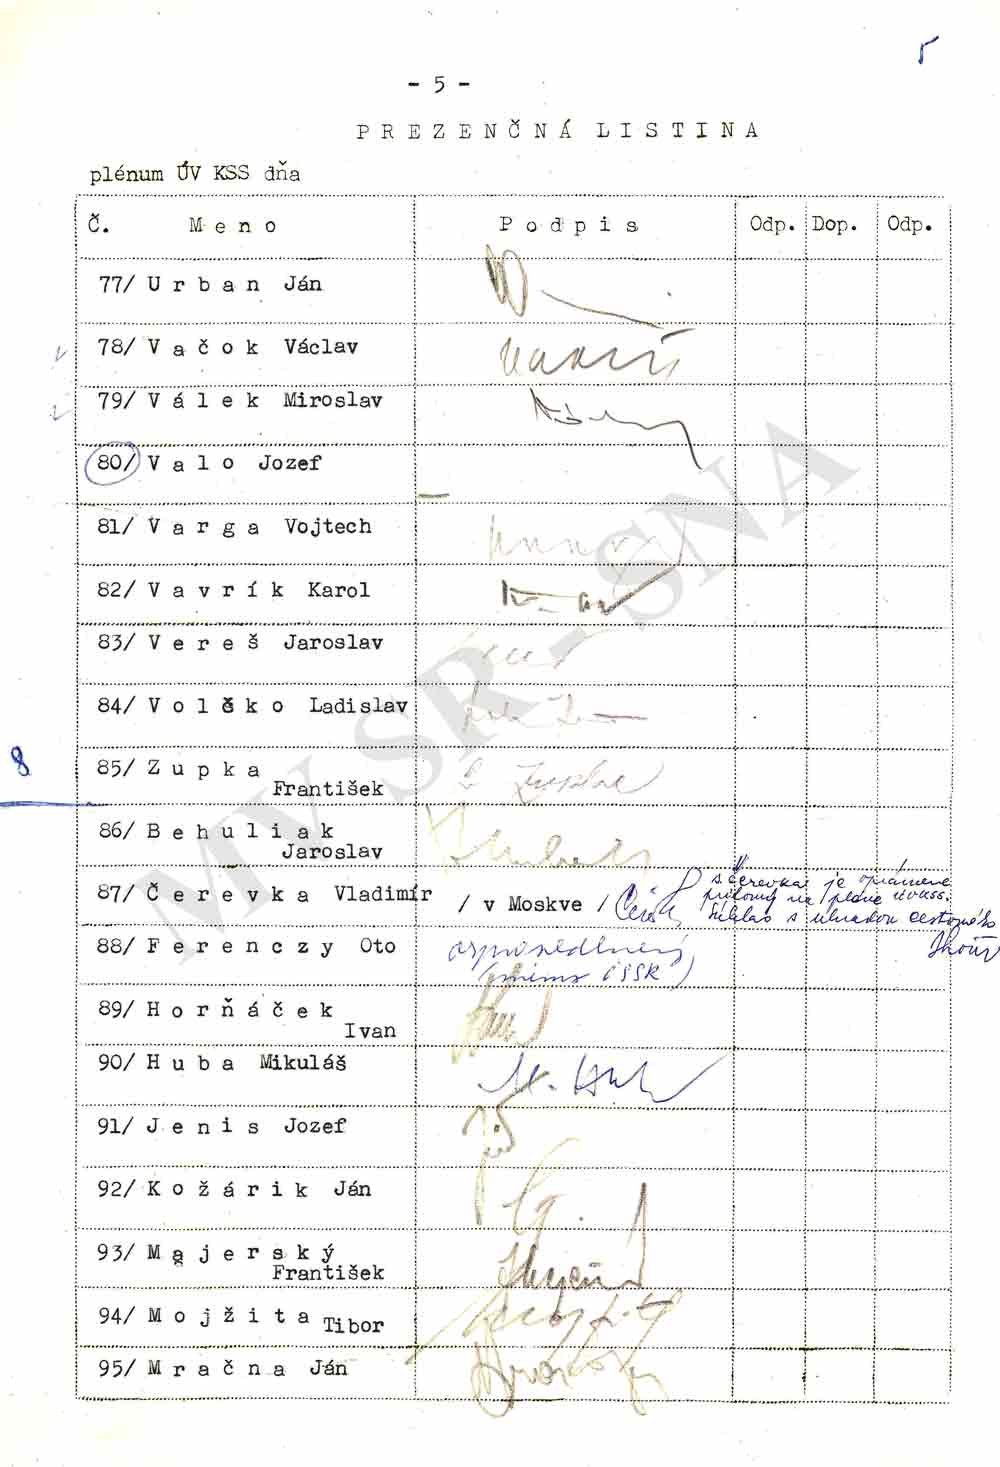 5
- 5 -
PREZENČNÁ LISTINA
plénum ÚV KSS dňa
Č. Meno Podpis Odp. Dop. Odp.
77/ Urban Ján
78/ Vačok Václav
79/ Válek Miroslav
80/ Valo Jozef
81/ Varga Vojtech
82/ Vavrík Karol
83/ Vereš Jaroslav
84/ Volčko Ladislav
8
85/ Zupka
František
86/ Behuliak
Jaroslav
87/ Čerevka Vladimír / v Moskve /
s. Čerevka je oprávnene
prítomný na pléne ÚV KSS.
Súhlas s úhradou cestovného
88/ Ferenczy Oto ospravedlnený
(mimo ČSSR)
89/ Horňáček
Ivan
90/ Huba Mikuláš M. Huba
91/ Jenis Jozef
92/ Kožárik Ján
93/ Majerský
František
94/ Mojžita Tibor
95/ Mračna Ján
MV SR - SNA